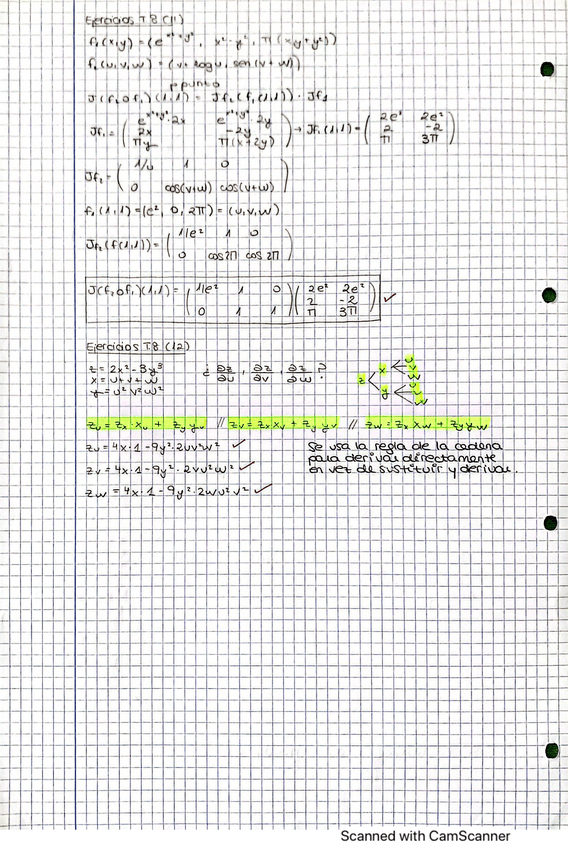 Ejercicios T.8 (11)
f₁(x,y) = (e^(x²+y²), x²-y², π(xy+y²))
f₂(u,v,w) = (v+logu, sen(v+w))
p punto
J(f₂of₁)(1,1) = Jf₂(f₁(1,1)) · Jf₁
Jf₁ = ( e^(x²+y²)·2x   e^(x²+y²)·2y ) → Jf₁(1,1) = ( 2e²   2e² )
2x   -2y   2   -2
πy   π(x+2y)   π   3π
Jf₂ = ( 1/u   1   0 )
0   cos(v+w)   cos(v+w)
f₁(1,1) = (e², 0, 2π) = (u,v,w)
Jf₂(f(1,1)) = ( 1/e²   1   0 )
0   cos2π   cos 2π
J(f₂of₁)(1,1) = ( 1/e²   1   0 ) ( 2e²   2e² ) ✓
2   -2
0   1   1   π   3π
Ejercicios T8 (12)
z = 2x² - 3y³   ¿ ∂z/∂u , ∂z/∂v , ∂z/∂w ?
x = u+v+w
y = u²v²w²
z   x   u   v   w
y   u   v   w
zᵤ = zₓ·xᵤ + z_y yᵤ // z_v = zₓ x_v + z_y y_v // z_w = zₓ x_w + z_y y_w
zᵤ = 4x·1 - 9y²·2uv²w² ✓
z_v = 4x·1 - 9y²·2vu²w² ✓
z_w = 4x·1 - 9y²·2wu²v² ✓
Se usa la regla de la cadena
para derivar directamente
en vez de sustituir y derivar.
Scanned with CamScanner